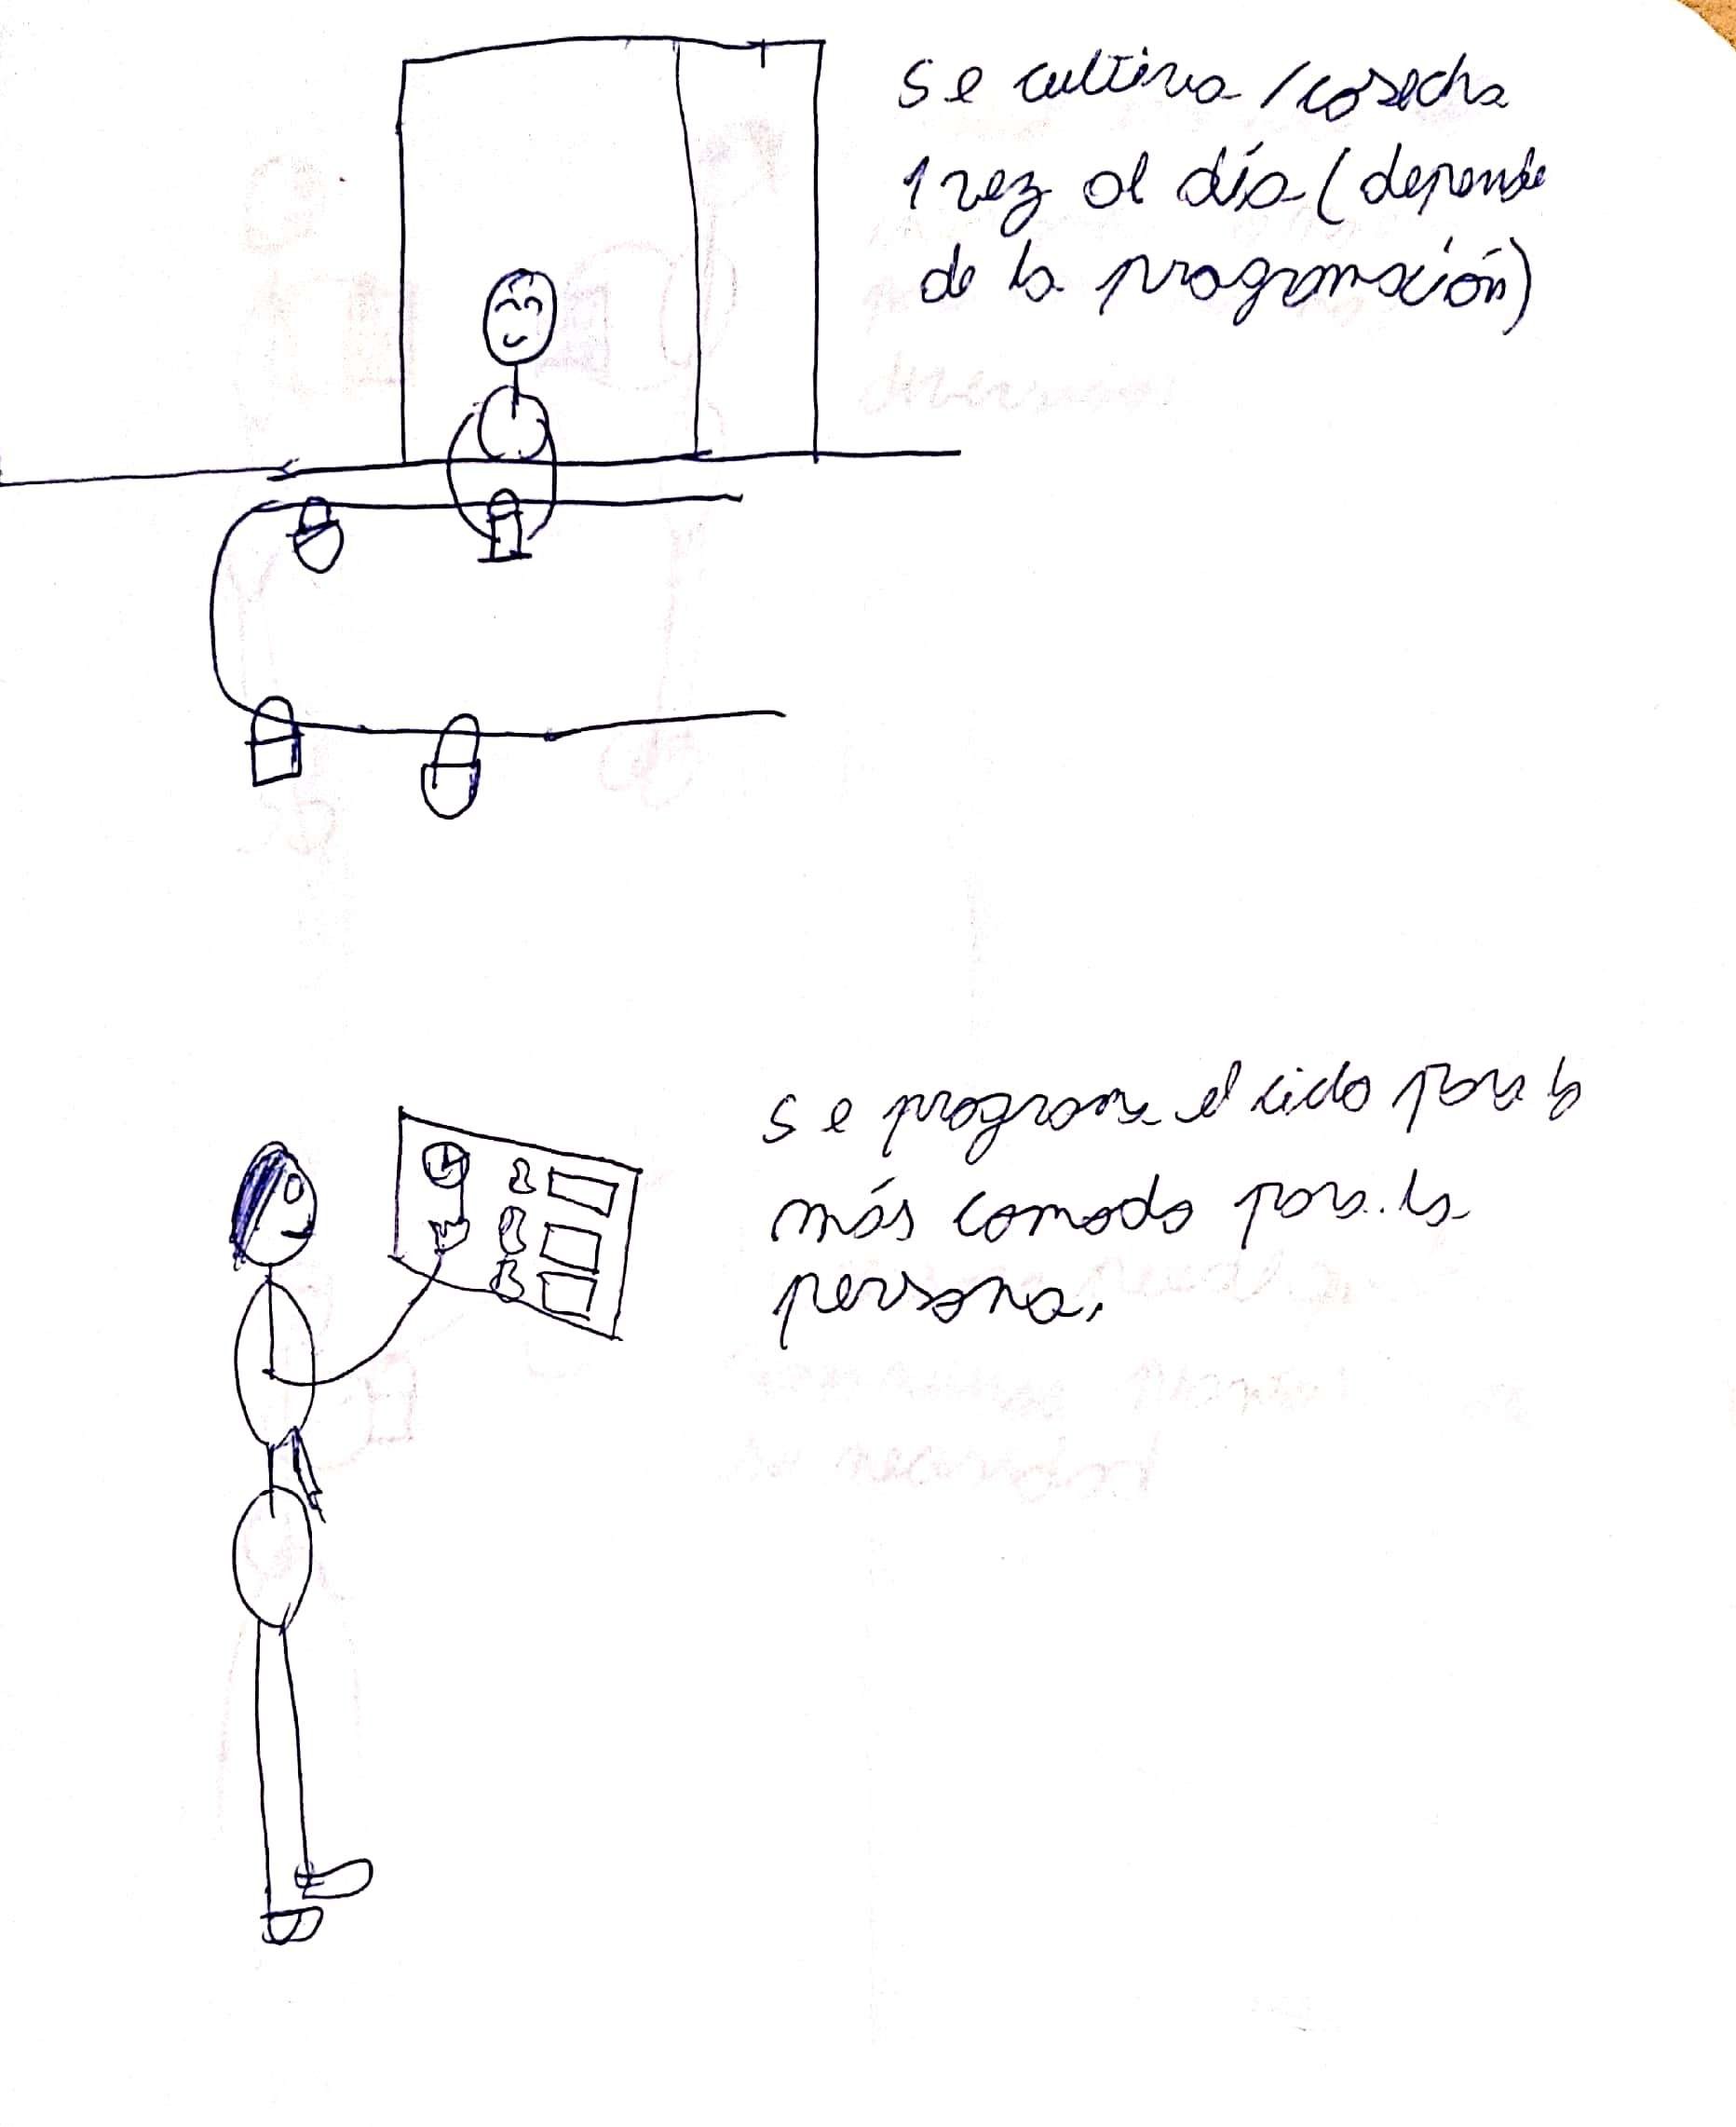 se cultiva / cosecha
1 vez al día (depende
de la programación)
se programa el ciclo para lo
más comodo para la
persona.